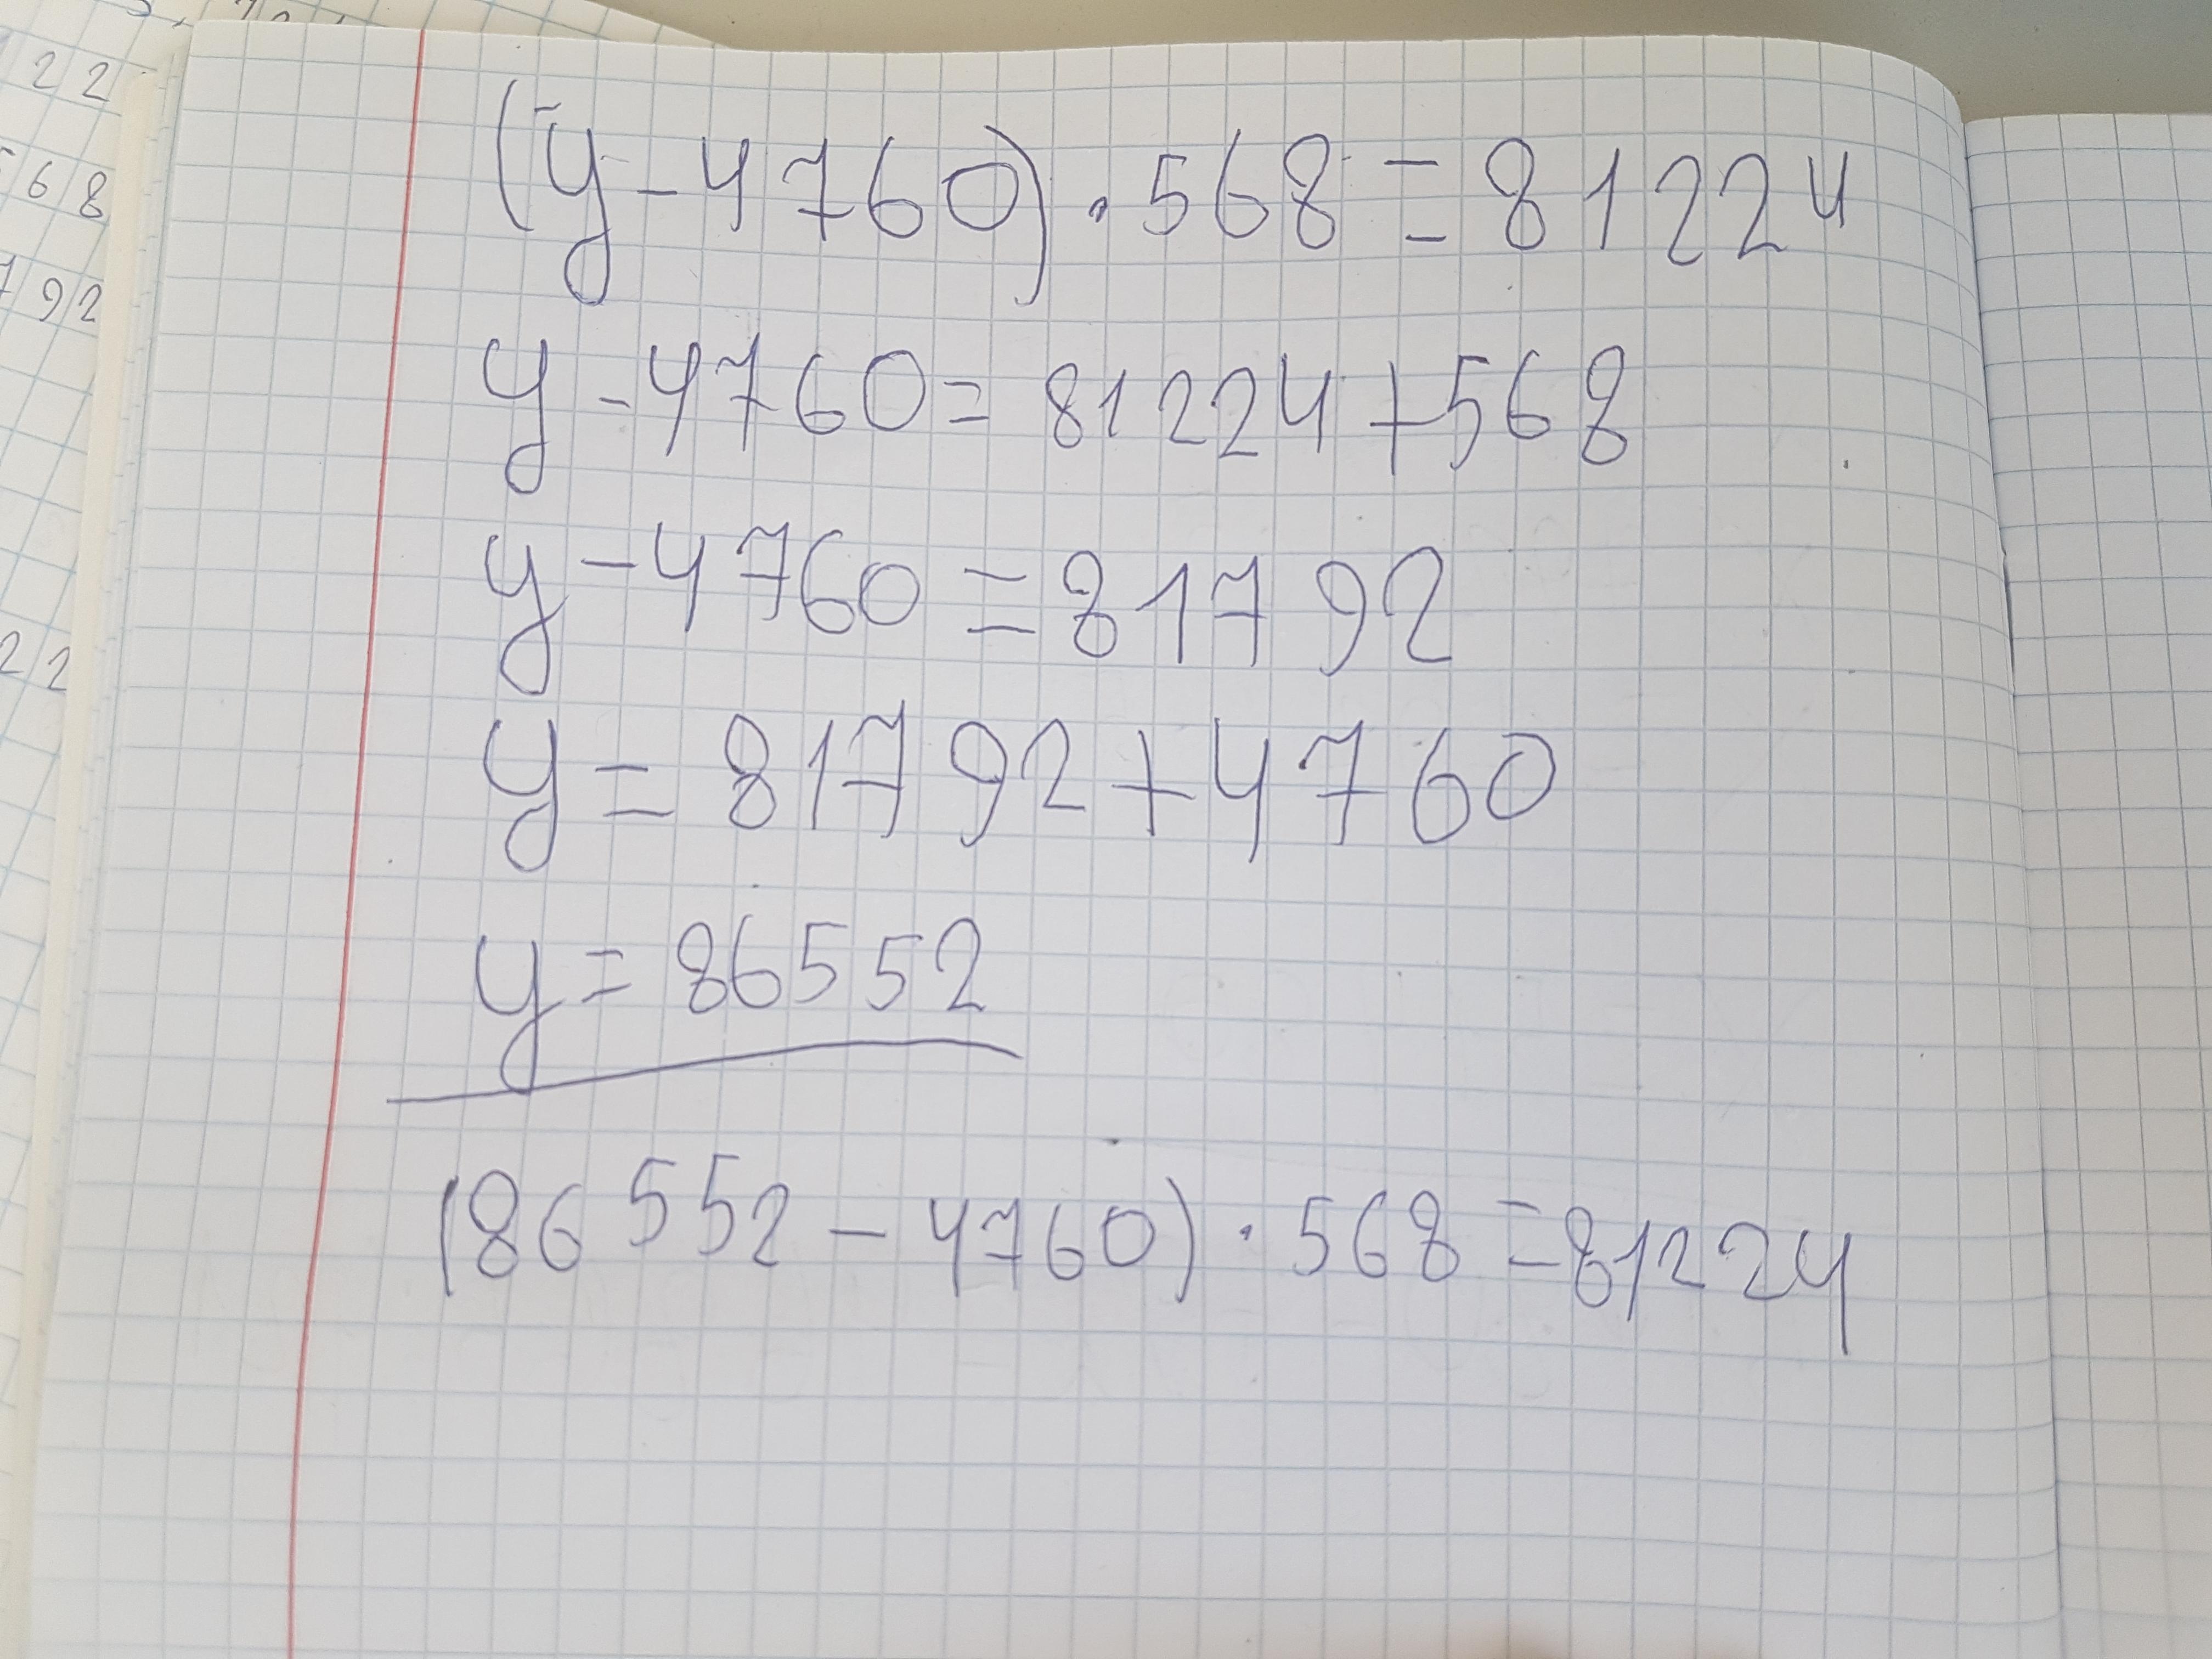 22
68
792
22
(y-4760)·568=81224
y-4760=81224+568
y-4760=81792
y=81792+4760
y=86552
(86552-4760)·568=81224